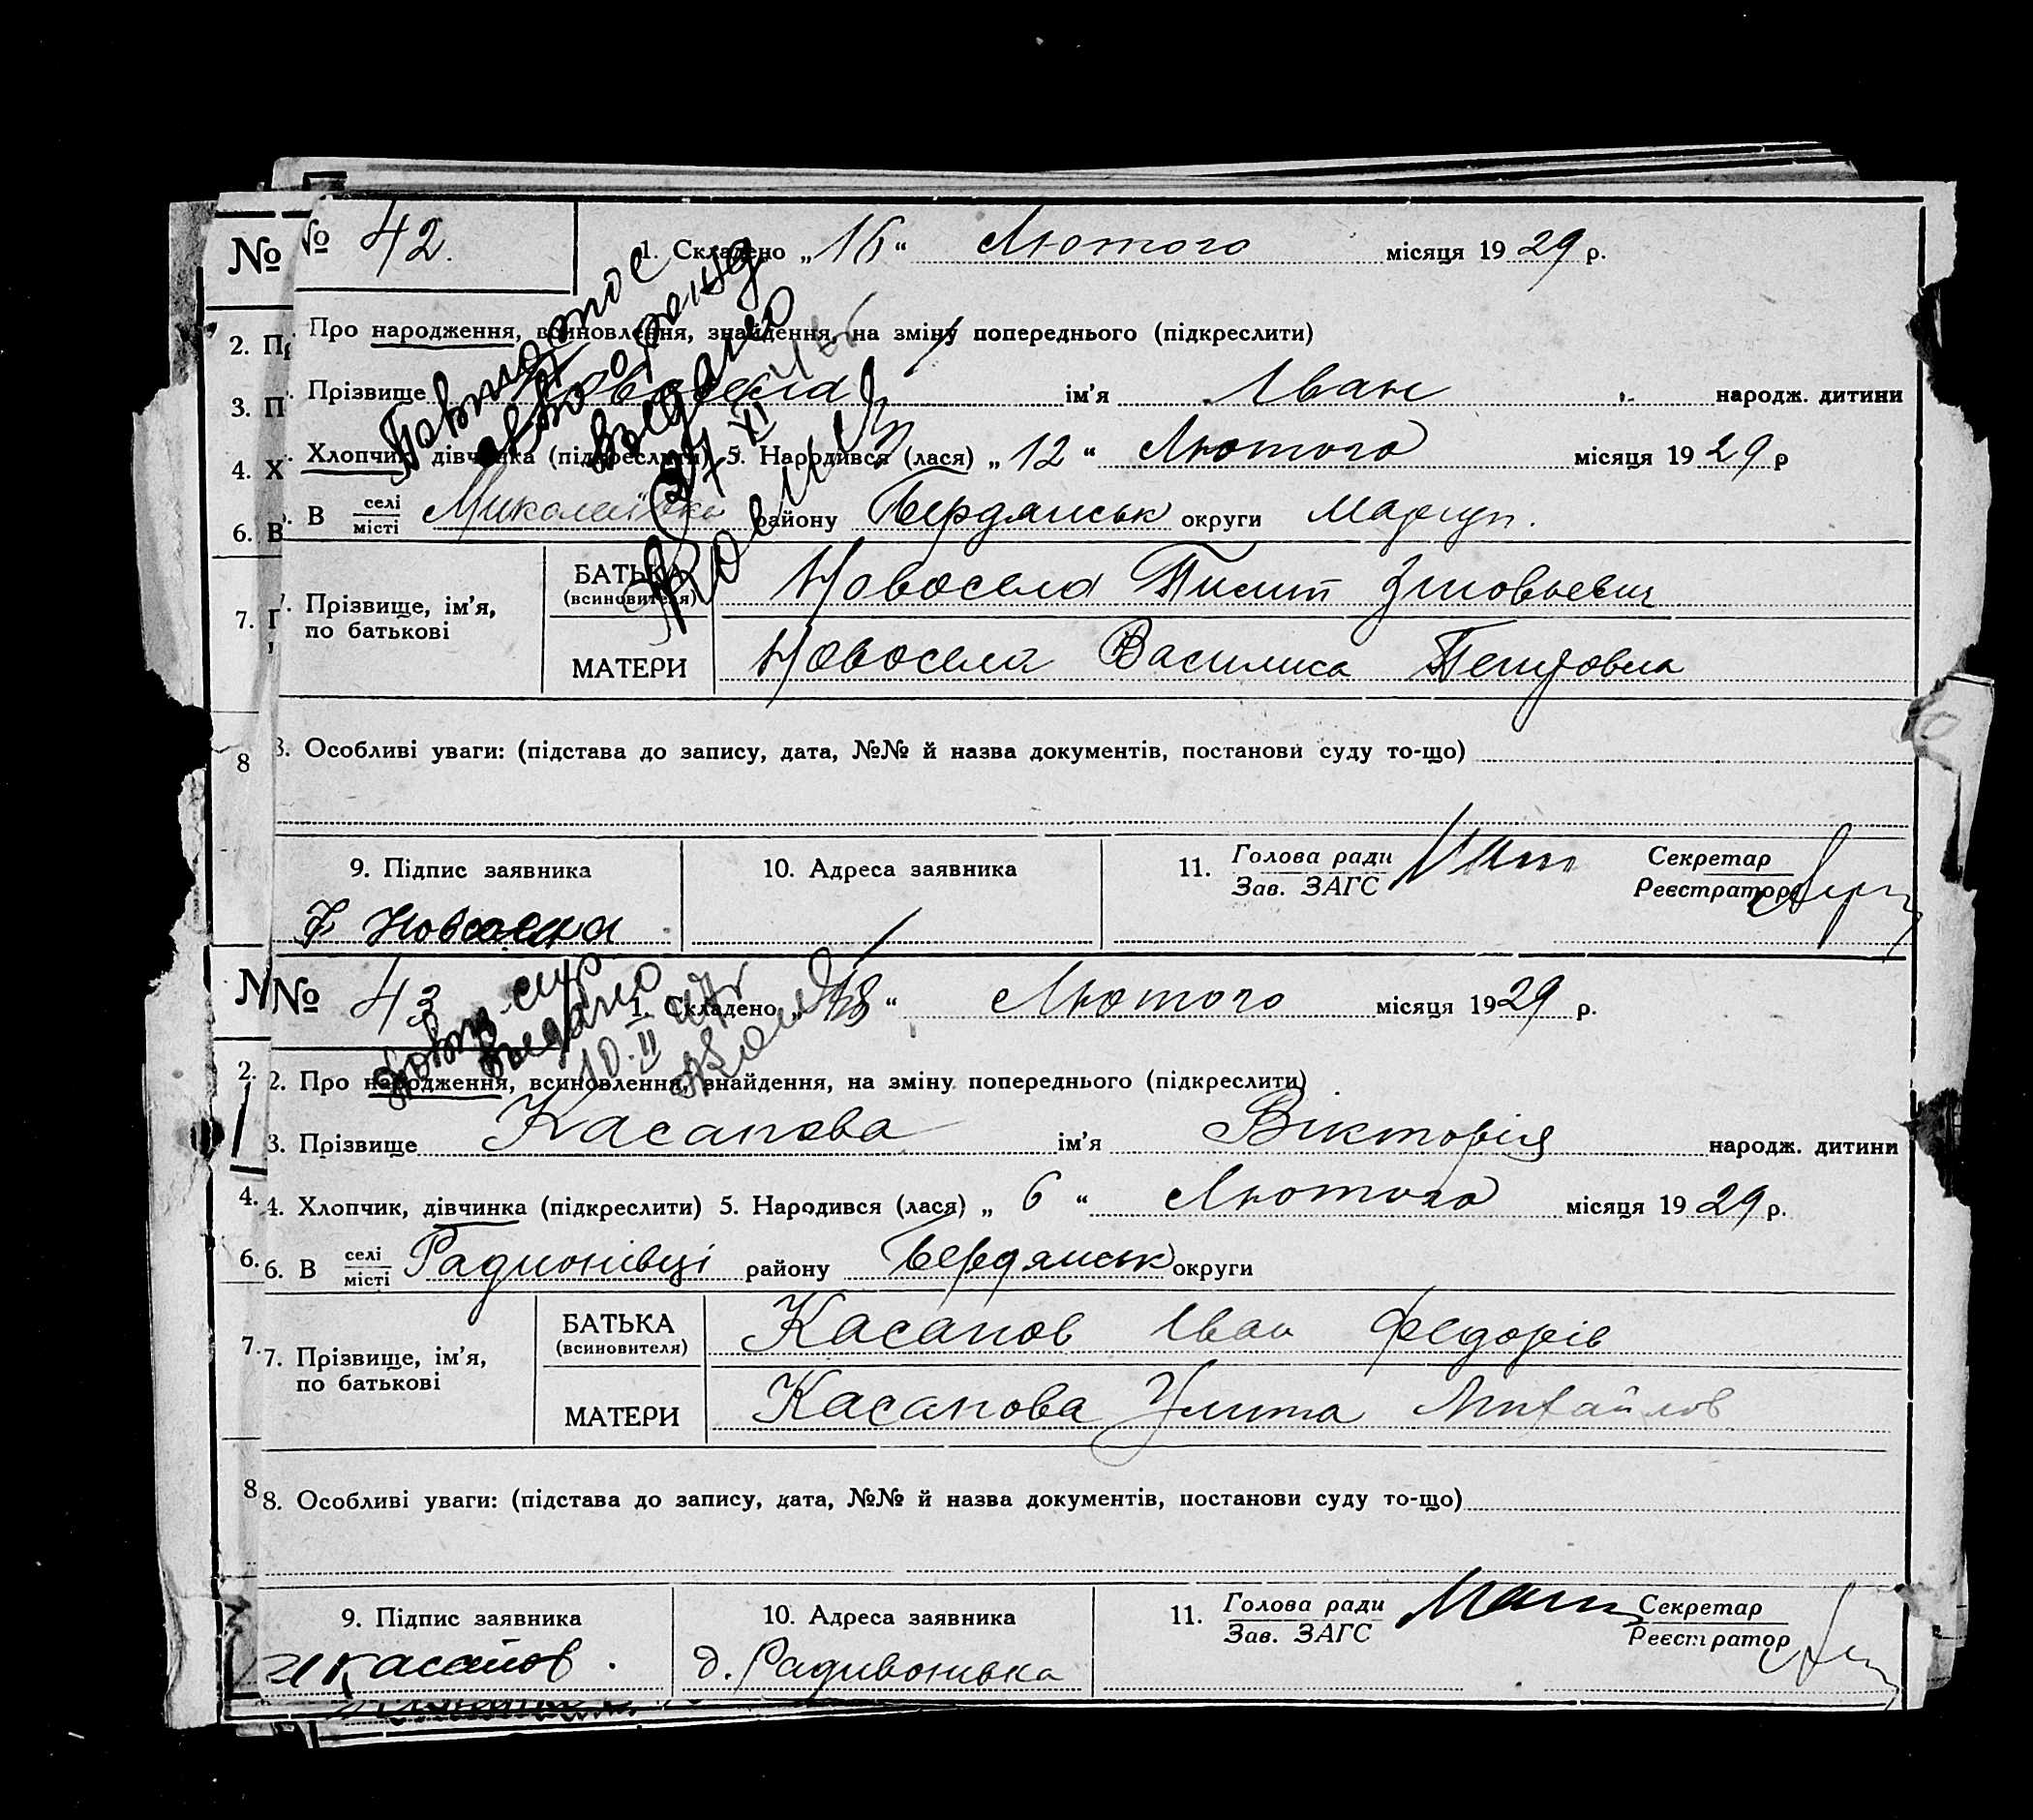 № № 42. 1. Складено „16“ Лютого місяця 1929 р.
2. Про народження, всиновлення, знайдення, на зміну попереднього (підкреслити)
3. П Прізвище Новосела ім'я Іван народж. дитини
4. Х Хлопчик, дівчинка (підкреслити) 5. Народився (лася) „12“ Лютого місяця 1929 р
6. В В селі місті Миколаївка району Бердянськ округи Маріуп.
7. Прізвище, ім'я, по батькові
БАТЬКА (всиновителя) Новосела Зиновьевич
МАТЕРИ Новосела Василиса
8 8. Особливі уваги: (підстава до запису, дата, №№ й назва документів, постанови суду то-що)
9. Підпис заявника 10. Адреса заявника 11. Голова ради Зав. ЗАГС Секретар Реєстратор
Новосела
Повторное
выдано
№ 43 1. Складено „18“ Лютого місяця 1929 р.
выдано
10.II 47г
2. 2. Про народження, всиновлення, знайдення, на зміну попереднього (підкреслити)
3. Прізвище Касапова ім'я Вікторія народж. дитини
4. 4. Хлопчик, дівчинка (підкреслити) 5. Народився (лася) „6“ Лютого місяця 1929 р.
6. 6. В селі місті Радионівці району Бердянськ округи
7. 7. Прізвище, ім'я, по батькові
БАТЬКА (всиновителя) Касапов Іван Федорів
МАТЕРИ Касапова Улита Михайлов
8 8. Особливі уваги: (підстава до запису, дата, №№ й назва документів, постанови суду то-що)
9. Підпис заявника 10. Адреса заявника 11. Голова ради Зав. ЗАГС Секретар Реєстратор
И Касапов. д. Радивонивка